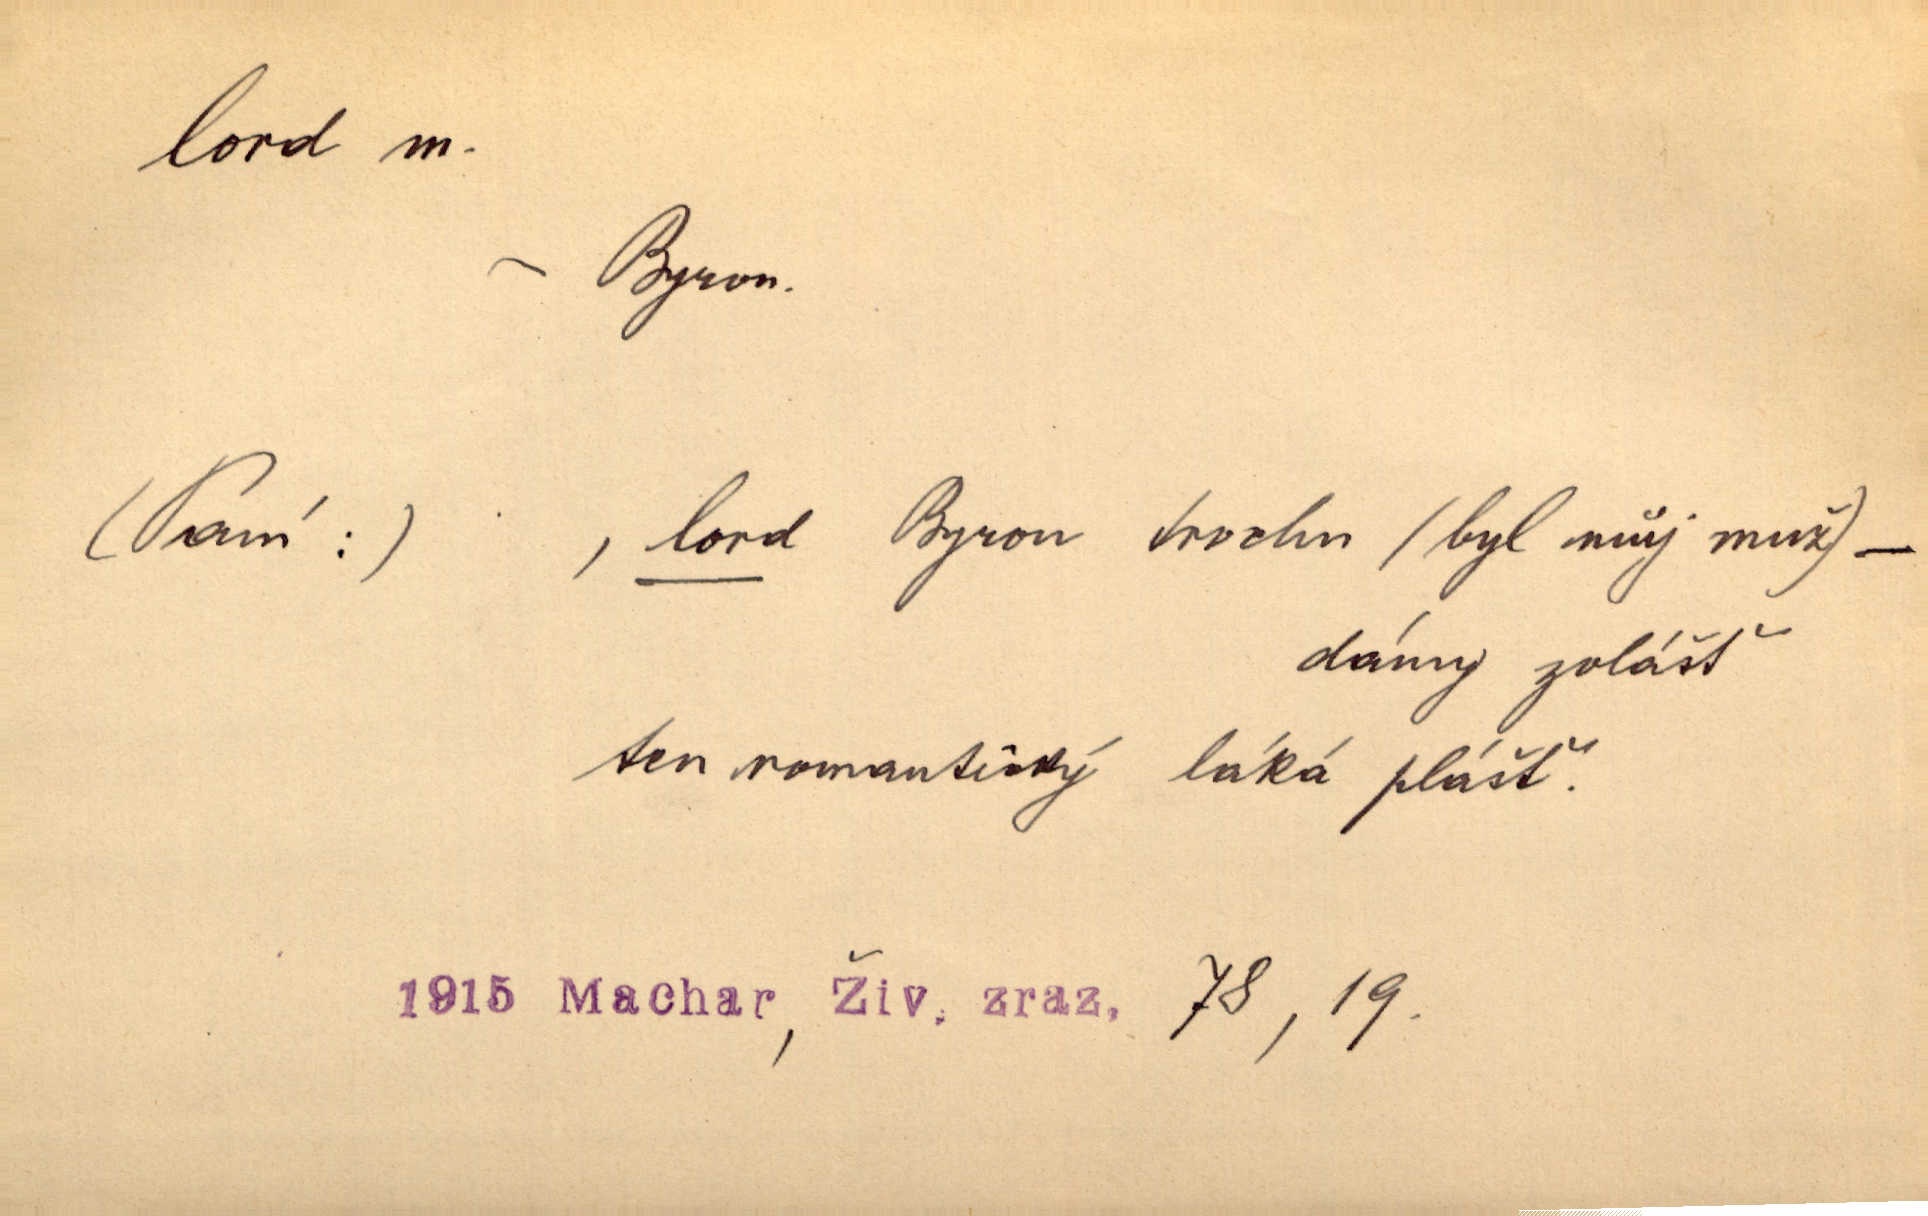 lord m.
~ Byron.
(Paní :) , lord Byron trochu (byl můj muž) —
dámy zvlášť
ten romantický láká plášť.
1915 Machar, Živ. zraz. 78, 19.